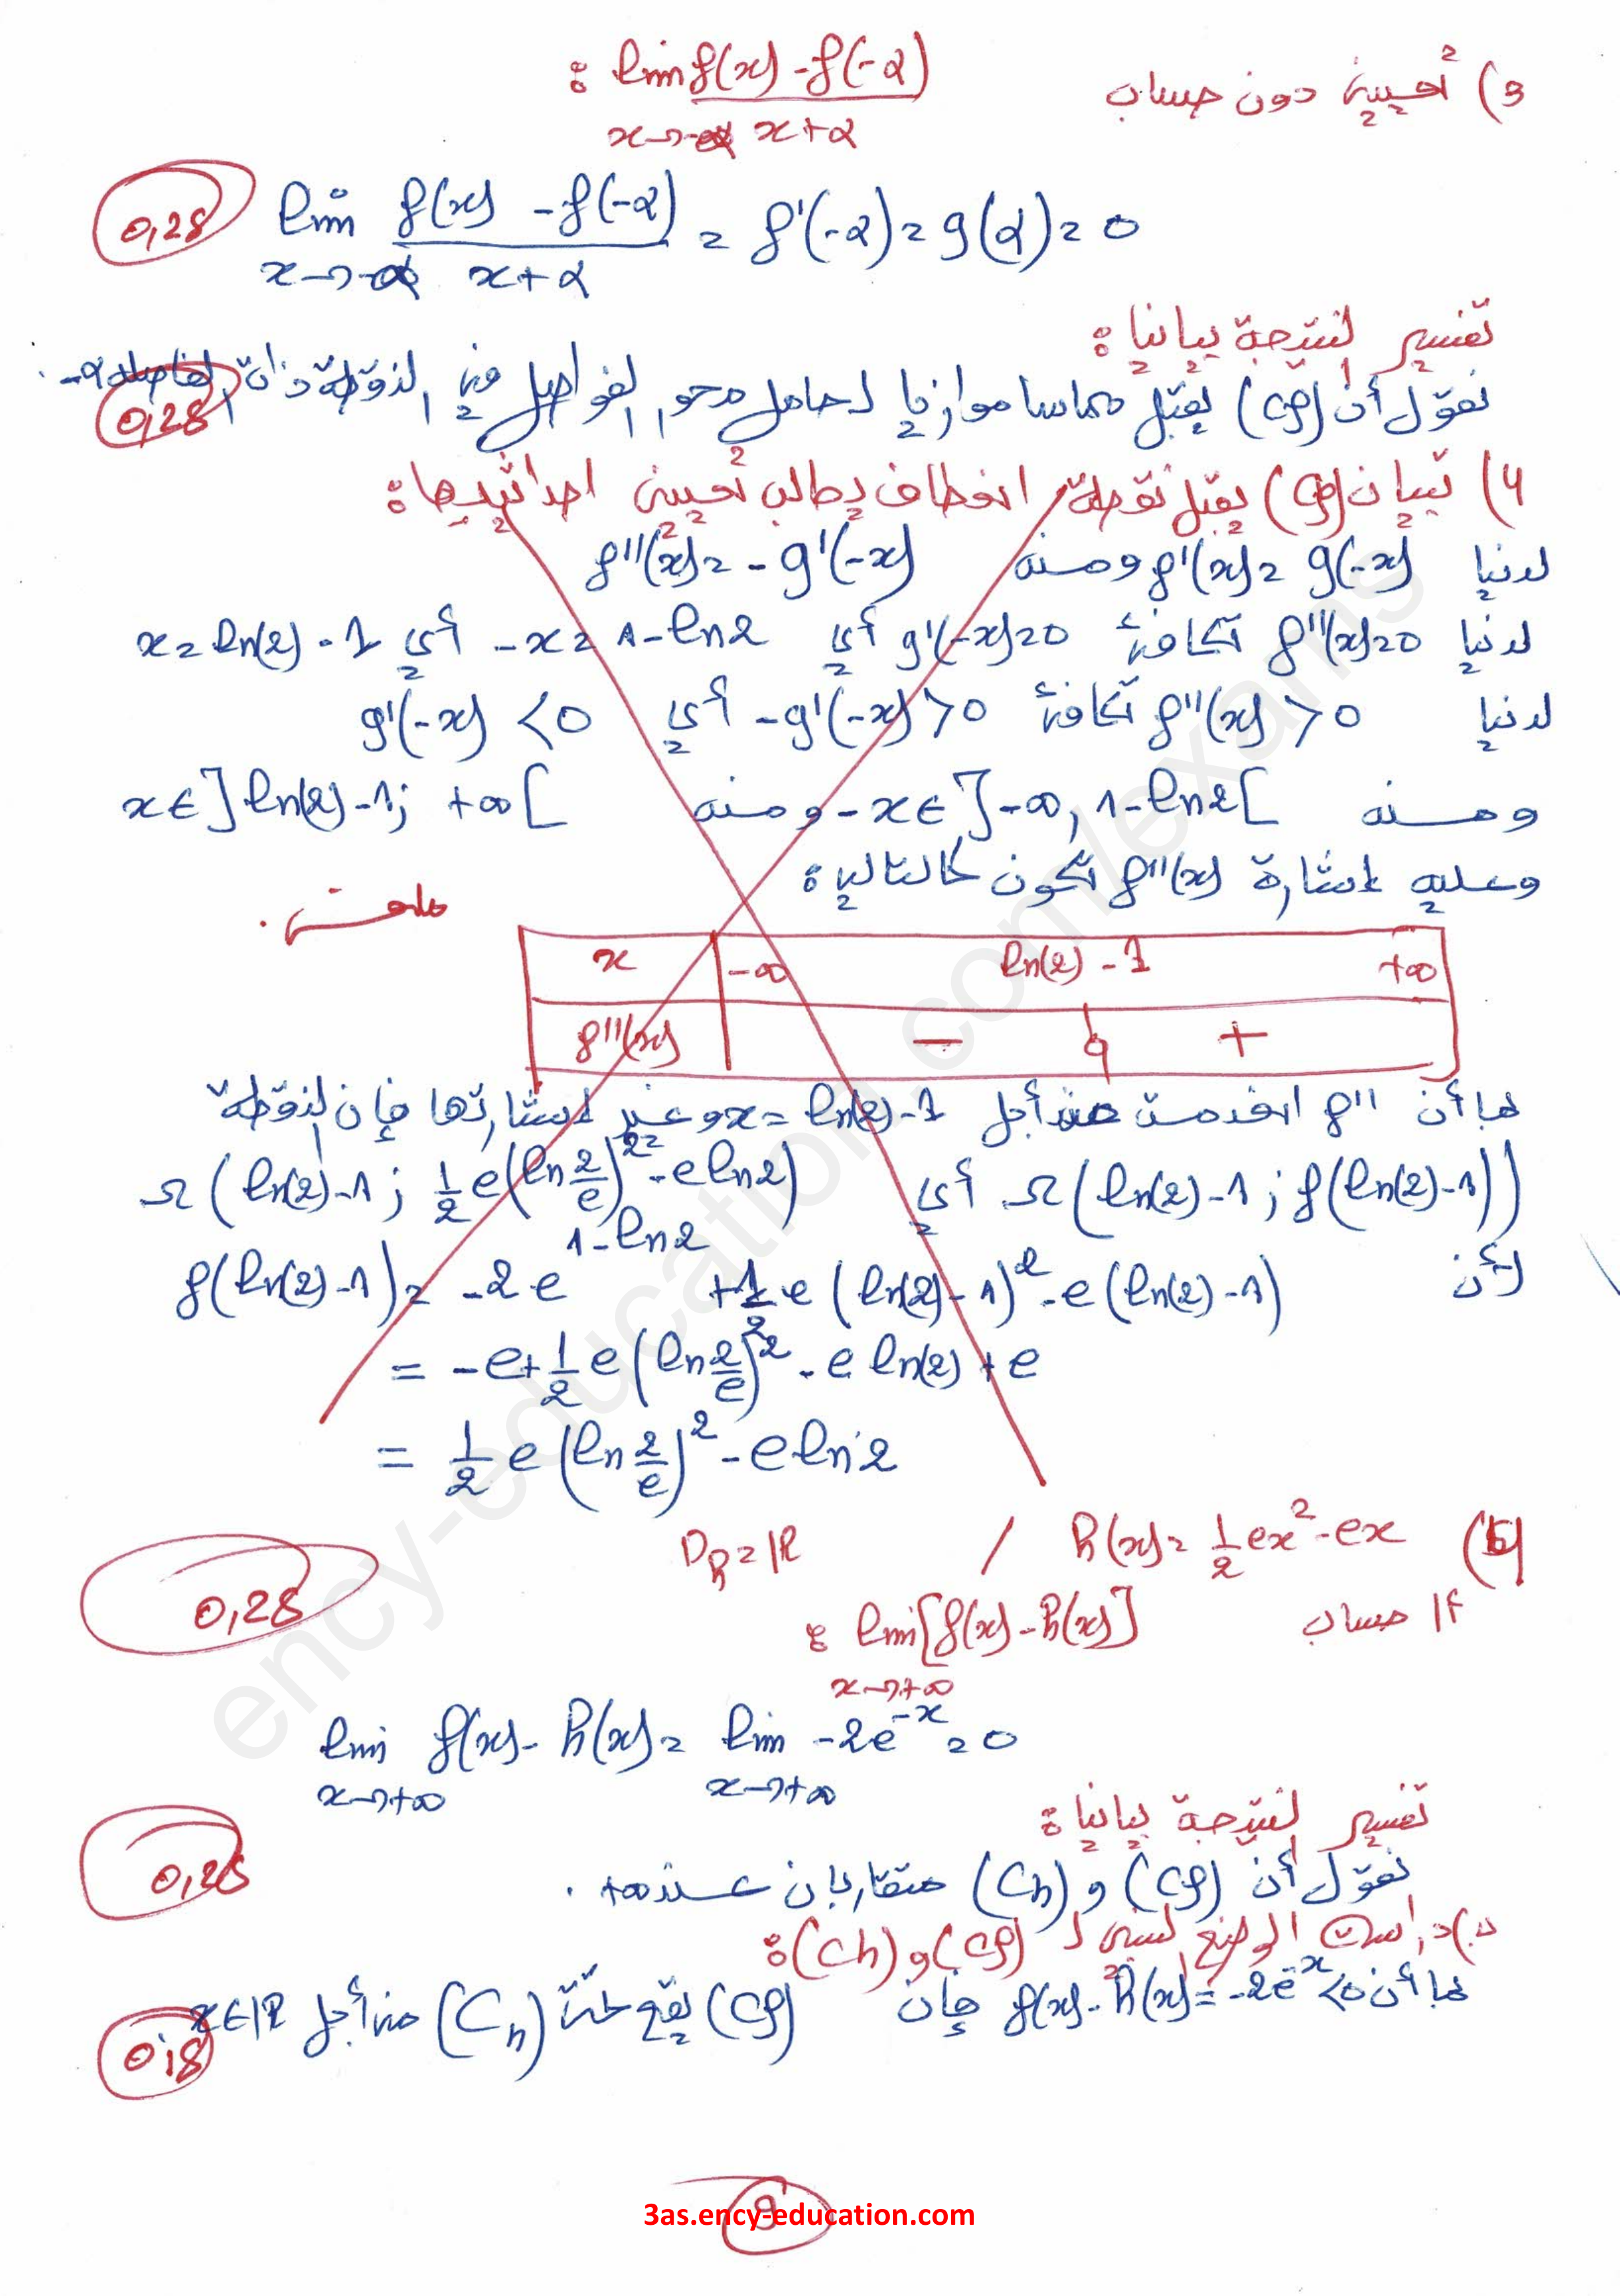 3) تعيين دون حساب lim_{x→-α} (f(x) - f(-α))/(x+α) :
lim_{x→-α} (f(x) - f(-α))/(x+α) = f'(-α) = g(α) = 0
0,25
تفسير النتيجة بيانيا :
نقول أن (Cf) يقبل مماسا موازيا لحامل محور الفواصل في النقطة ذات الفاصلة -α
0,25
4) تبيان (Cf) يقبل نقطة انعطاف يطلب تعيين احداثييها :
لدينا f'(x) = g(-x) ومنه f''(x) = -g'(-x)
لدينا f''(x)=0 تكافئ g'(-x)=0 أي -x = 1-ln2 أي x = ln(2) - 1
لدينا f''(x) > 0 تكافئ -g'(-x) > 0 أي g'(-x) < 0
ومنه -x ∈ ]-∞, 1-ln2[ ومنه x ∈ ]ln(2)-1; +∞[
وعليه إشارة f''(x) تكون كالتالي :
x -∞ ln(2) - 1 +∞
f''(x) - 0 +
بما أن f'' انعدمت عند أجل x = ln(2)-1 وغير إشارتها فإن النقطة
Ω(ln(2)-1 ; f(ln(2)-1)) أي Ω(ln(2)-1 ; 1/2 e(ln 2/e)^2 - e ln2)
لأن f(ln(2)-1) = -2e^{1-ln2} + 1/2 e (ln(2)-1)^2 - e(ln(2)-1)
= -e + 1/2 e (ln 2/e)^2 - e ln(2) + e
= 1/2 e (ln 2/e)^2 - e ln2
5) h(x) = 1/2 ex^2 - ex / D_h = ℝ
0,25
أ/ حساب lim_{x→+∞} [f(x) - h(x)] :
lim_{x→+∞} f(x) - h(x) = lim_{x→+∞} -2e^{-x} = 0
تفسير النتيجة بيانيا :
0,25
نقول أن (Cf) و (Ch) متقاربان عند +∞ .
ب) دراسة الوضع النسبي لـ (Cf) و (Ch) :
بما أن f(x) - h(x) = -2e^{-x} < 0 فإن (Cf) يقع تحت (Ch) من أجل x ∈ ℝ
0,5
9
3as.ency-education.com
ency-education.com/exams